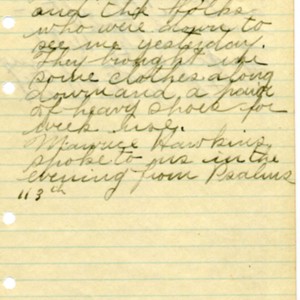 and the folks
who were down to
see me yesterday.
They brought me
some clothes along
down and a pair
of heavy shoes for
week
Maurice Hawkins
spoke to us in the
evening from Psalms
113th